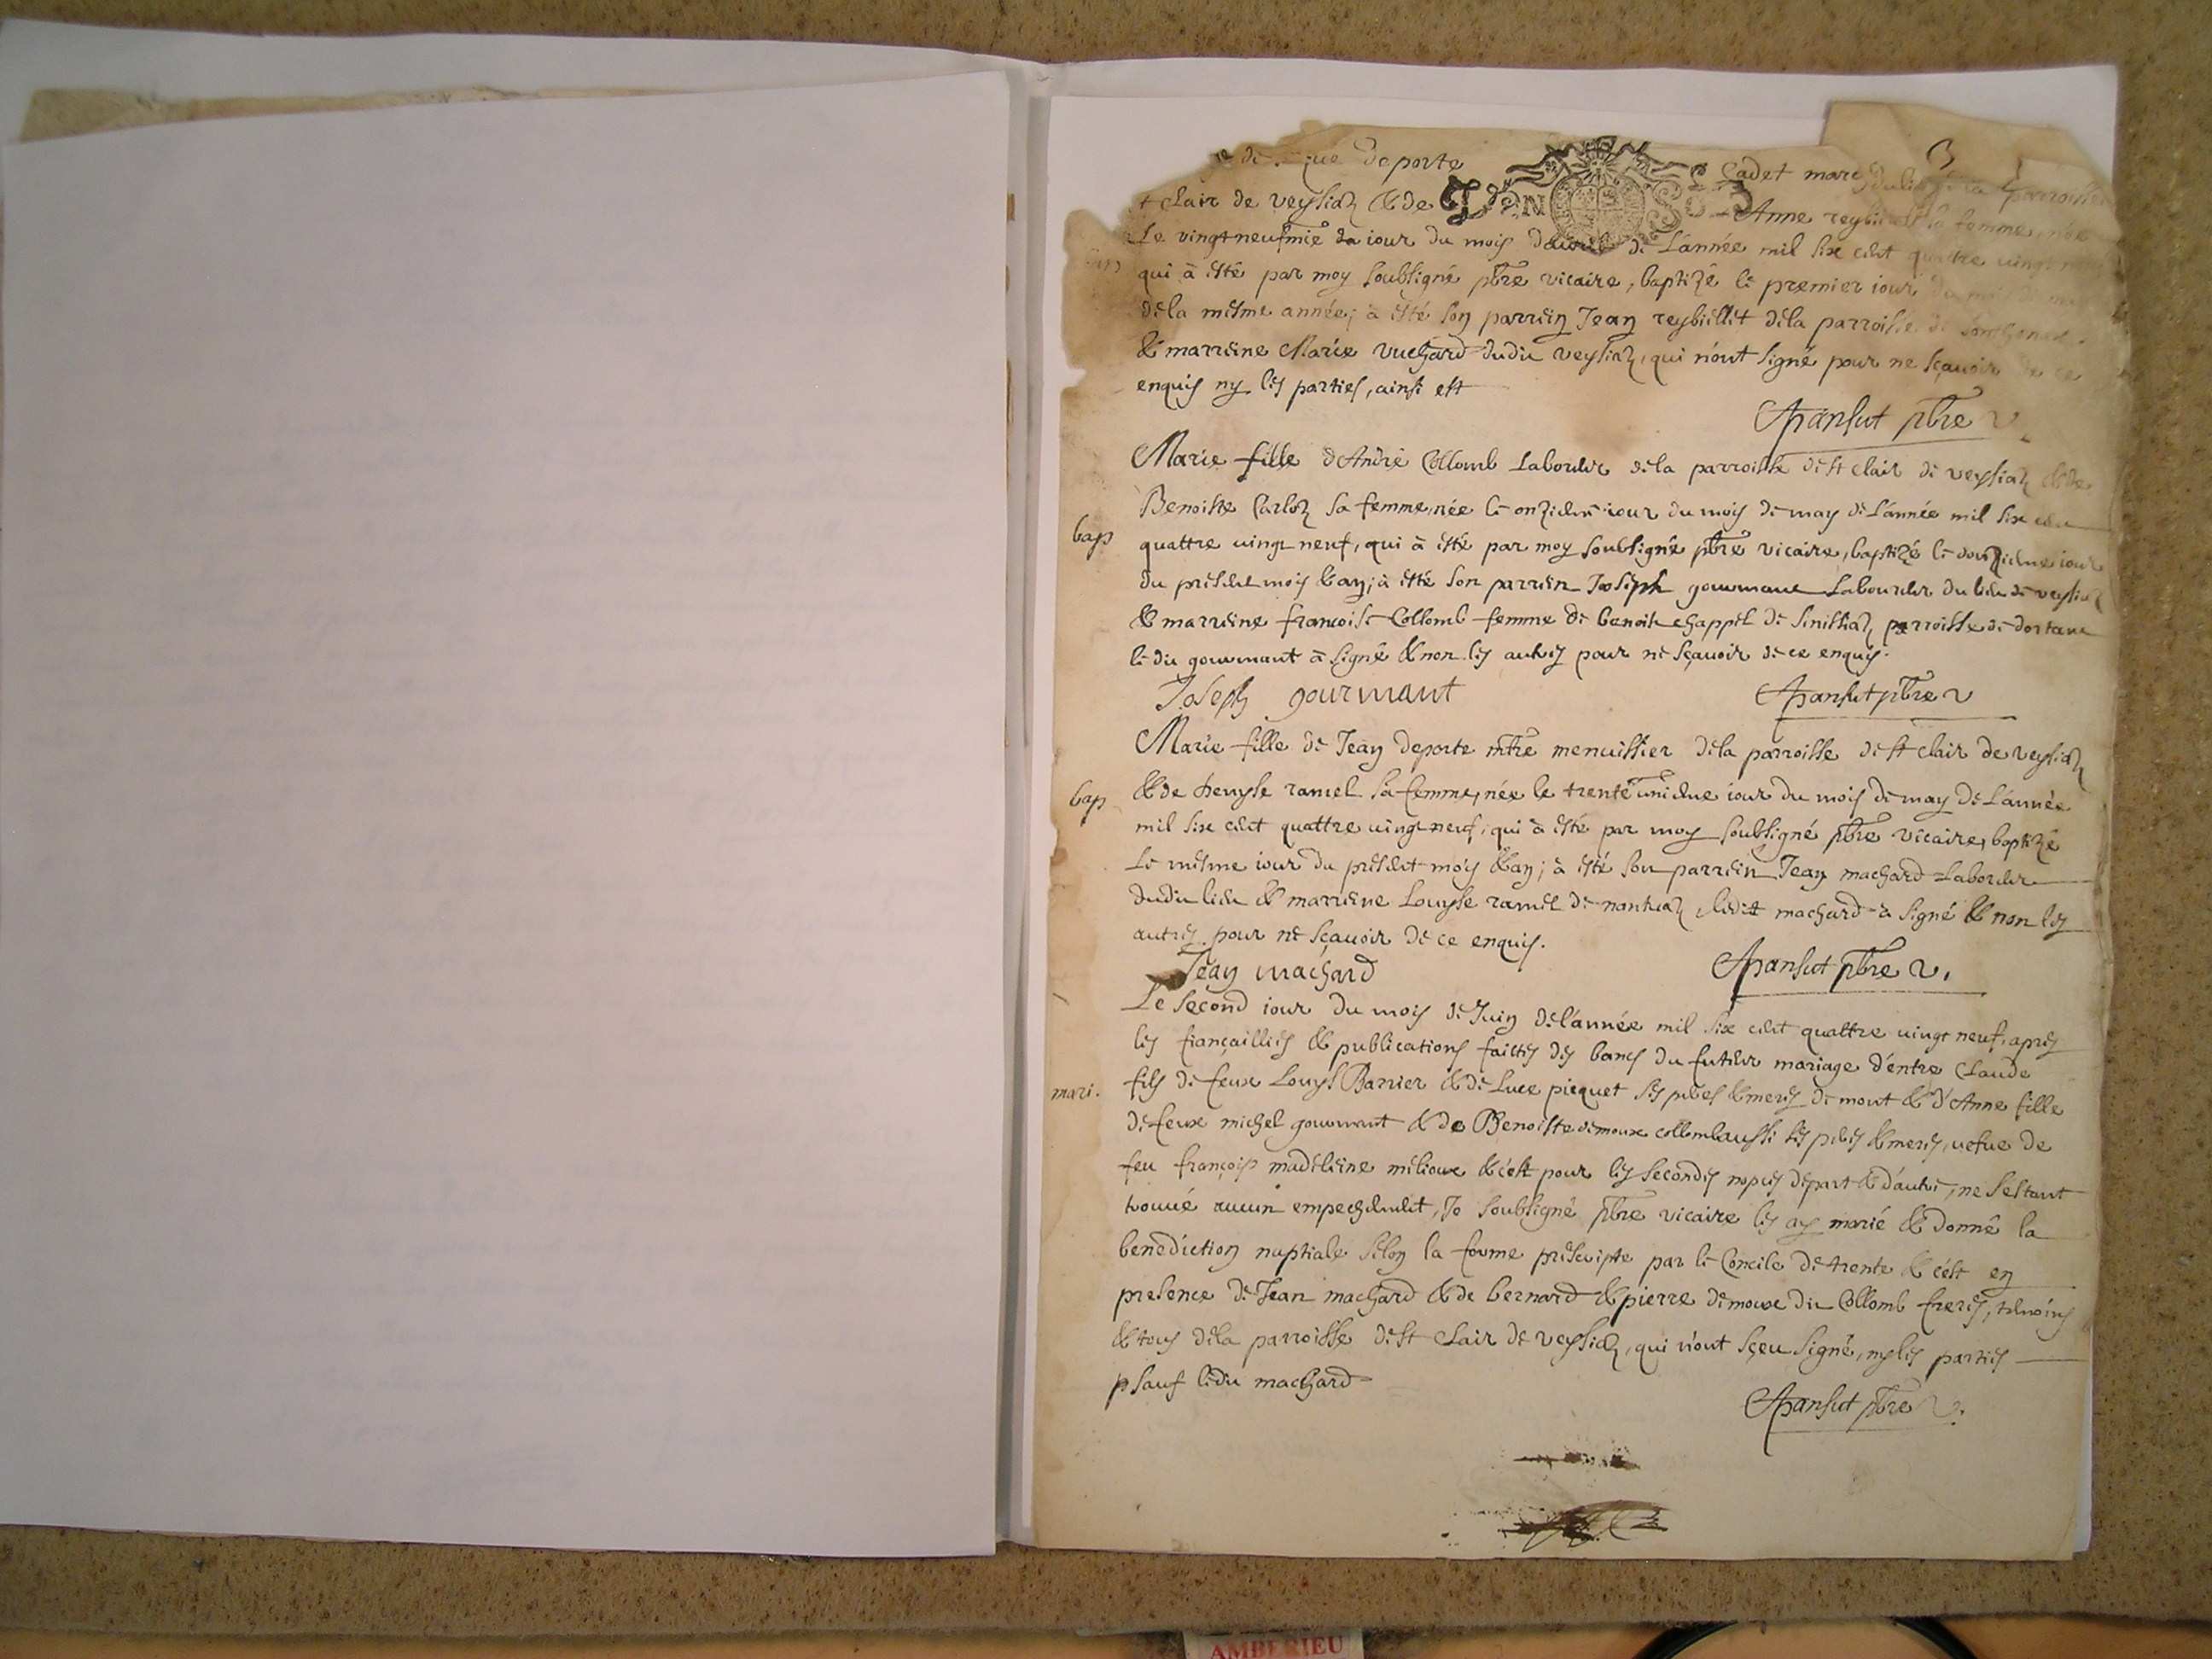 3
de porte Cadet
st Clair de veysiaz & de Anne
Le vingt neufmie jour du mois de L'année mil six cent quattre vingt
qui à esté par moy soubsigné pbre vicaire, baptizé le premier iour
dela mesme année; à esté son parrein Jean reybiellet déla parroisse de
& marreine Marie vuchard dudit veysiaz, qui n'ont signé pour ne sçavoir de ce
enquis ny les parties, ainsi est
pbre v.
Marie fille d'André Collomb Laboureur déla parroisse de st clair de veysiaz & de
bap
Benoiste Carloz sa femme, née le onzieme iour du mois de may de L'année mil six cent
quattre vingt neuf, qui à esté par moy soubsigné pbre vicaire, baptizé le douzieme iour
du present mois & an; à esté son parrein Joseph gourmant Laboureur du lieu de veysiaz
& marreine francoise Collomb femme de benoit chappel de sinissiaz parroisse de dortant
le dit gourmant à signé & non les autres pour ne sçavoir de ce enquis.
Joseph gourmant pbre v
Marie fille de Jean deporte mtre menuissier déla parroisse de st clair de veysiaz
bap
& de denyse ramel sa femme, née le trente unieme iour du mois de may de L'année
mil six cent quattre vingt neuf, qui à esté par moy soubsigné pbre vicaire, baptizé
Le mesme iour du present mois & an; à esté son parrein Jean machard Laboureur
dudit lieu & marreine Louyse ramel de ledit machard à signé & non les
autres pour ne sçavoir de ce enquis.
Jean machard pbre v.
Le second iour du mois de Juin de l'année mil six cent quattre vingt neuf, apres
les fiançailles & publications faictes des bancs du futeur mariage d'entre Claude
mari.
fils de feux Louys Barrier & de Luce picquet ses peres & meres de mont & d'Anne fille
de feux michel gourmant & de Benoiste demoux collomb aussi ses peres & meres, vefue de
feu françois madeleine milioux & c'est pour les secondes nopces depart & d'autre, ne s'estant
trouué aucun empechement, Je soubsigné pbre vicaire les ay marié & donné la
benediction nuptiale selon la forme prescripte par le Concile de trente & c'est en
presence de Jean machard & de bernard & pierre demoux dit Collomb freres, temoins
& tous déla parroisse de st Clair de veysiaz, qui n'ont sçeu signé, ny les parties
sauf ledit machard
pbre v.
AMBERIEU